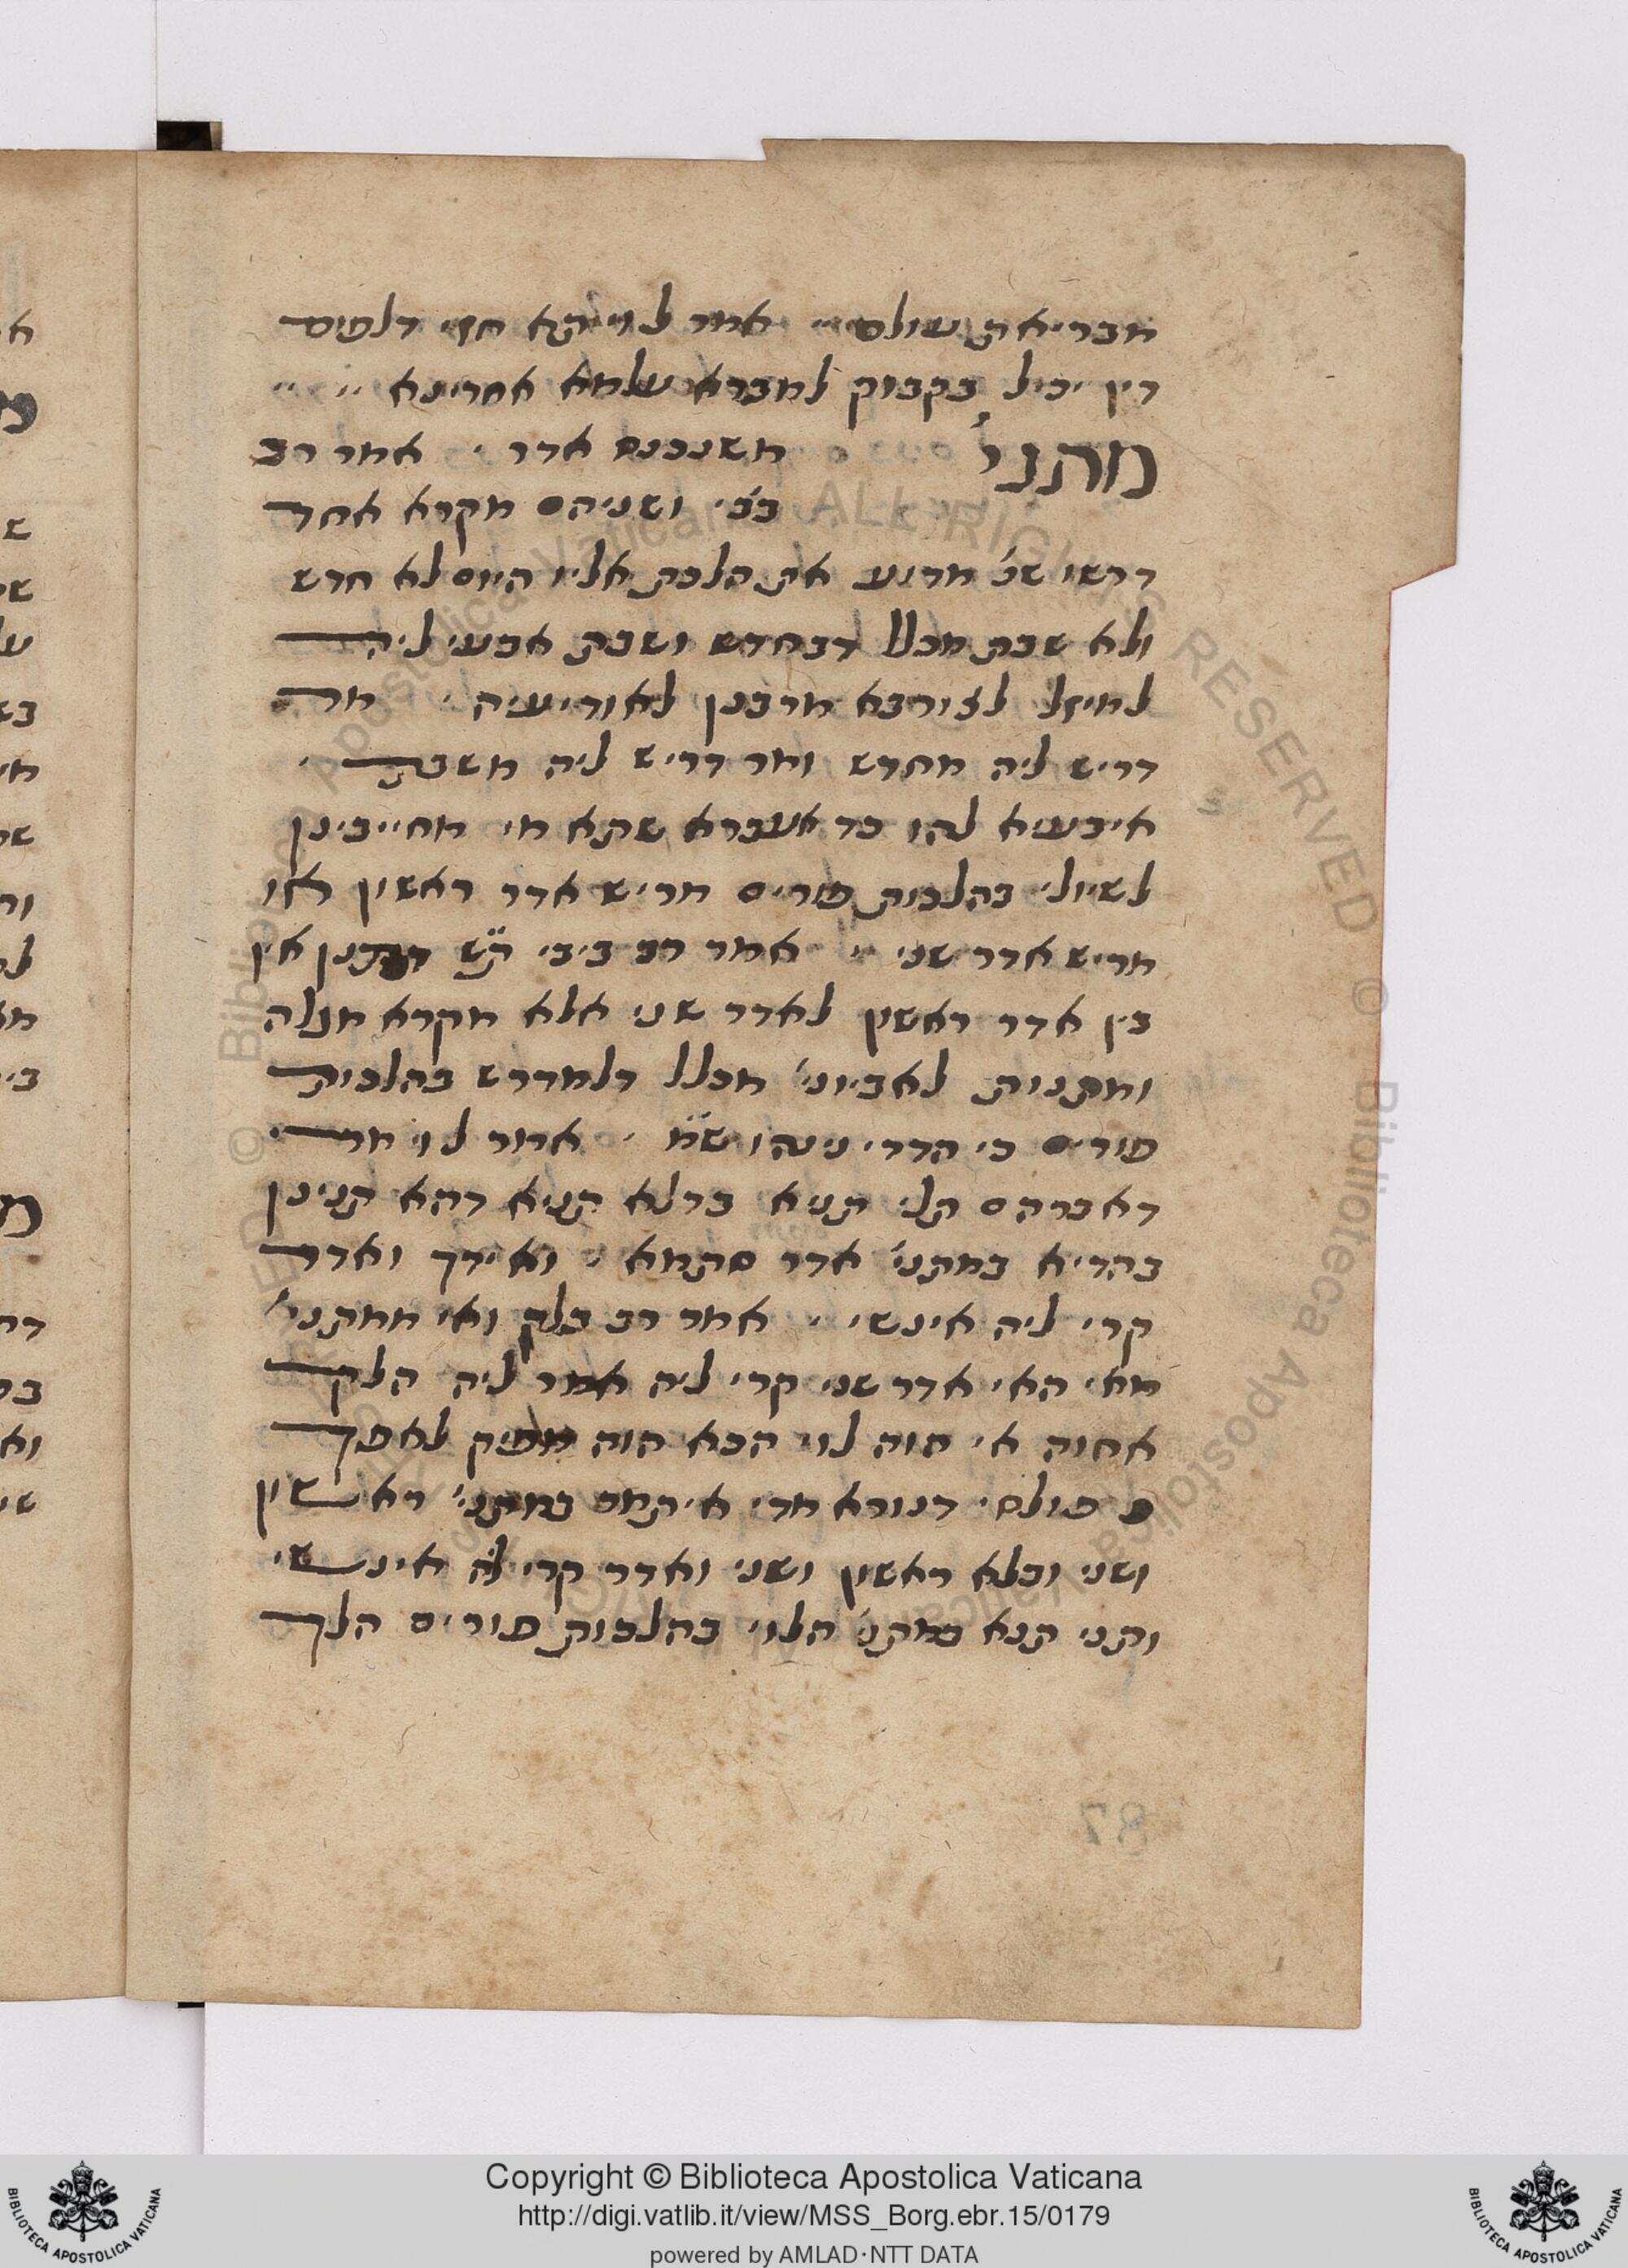 מבריאת עולם אמר לוי תא חזי דלפום
דין יכיל בקבוק למברא עלמא אחרינא
מתני' משנכנס אדר אמר רב
ביבי ושניהם מקרא אחד
דרשו שנ' מדוע את הלכת אליו היום לא חדש
ולא שבת מכלל דבחדש ושבת אבעי ליה
למיזל לצורבא מרבנן לאודועיה מר
דריש ליה מחדש ומר דריש ליה משבת
איבעיא להו כד אעברא שתא מי מחייבינן
לשיולי בהלכות פורים מריש אדר ראשון או
מריש אדר שני אמר רב ביבי ת"ש דתנן אין
בין אדר ראשון לאדר שני אלא מקרא מגלה
ומתנות לאביוני' מכלל דלמדרש בהלכות
פורים כי הדדי נינהו ש"מ אמר לוי מרי
דאברהם תלי תניא בדלא תניא דהא תנינן
בהדיא במתני' אדר סתמא ואידך ואדר
קרי ליה אינשי אמר רב בלק ואי ממתני'
מאי האי אדר שני קרי ליה אמר ליה הלק
אחוה אי הוה לוי הכא הוה מפיק לאפך
פולסי דנורא חדי איתמר במתני' ראשון
ושני ובלא ראשון ושני ואדר קרי ליה אינשי
ותני תנא במתני' הלוי בהלכות פורים הלך
87
Copyright © Biblioteca Apostolica Vaticana
http://digi.vatlib.it/view/MSS_Borg.ebr.15/0179
powered by AMLAD·NTT DATA
BIBLIOTECA APOSTOLICA VATICANA
BIBLIOTECA APOSTOLICA VATICANA